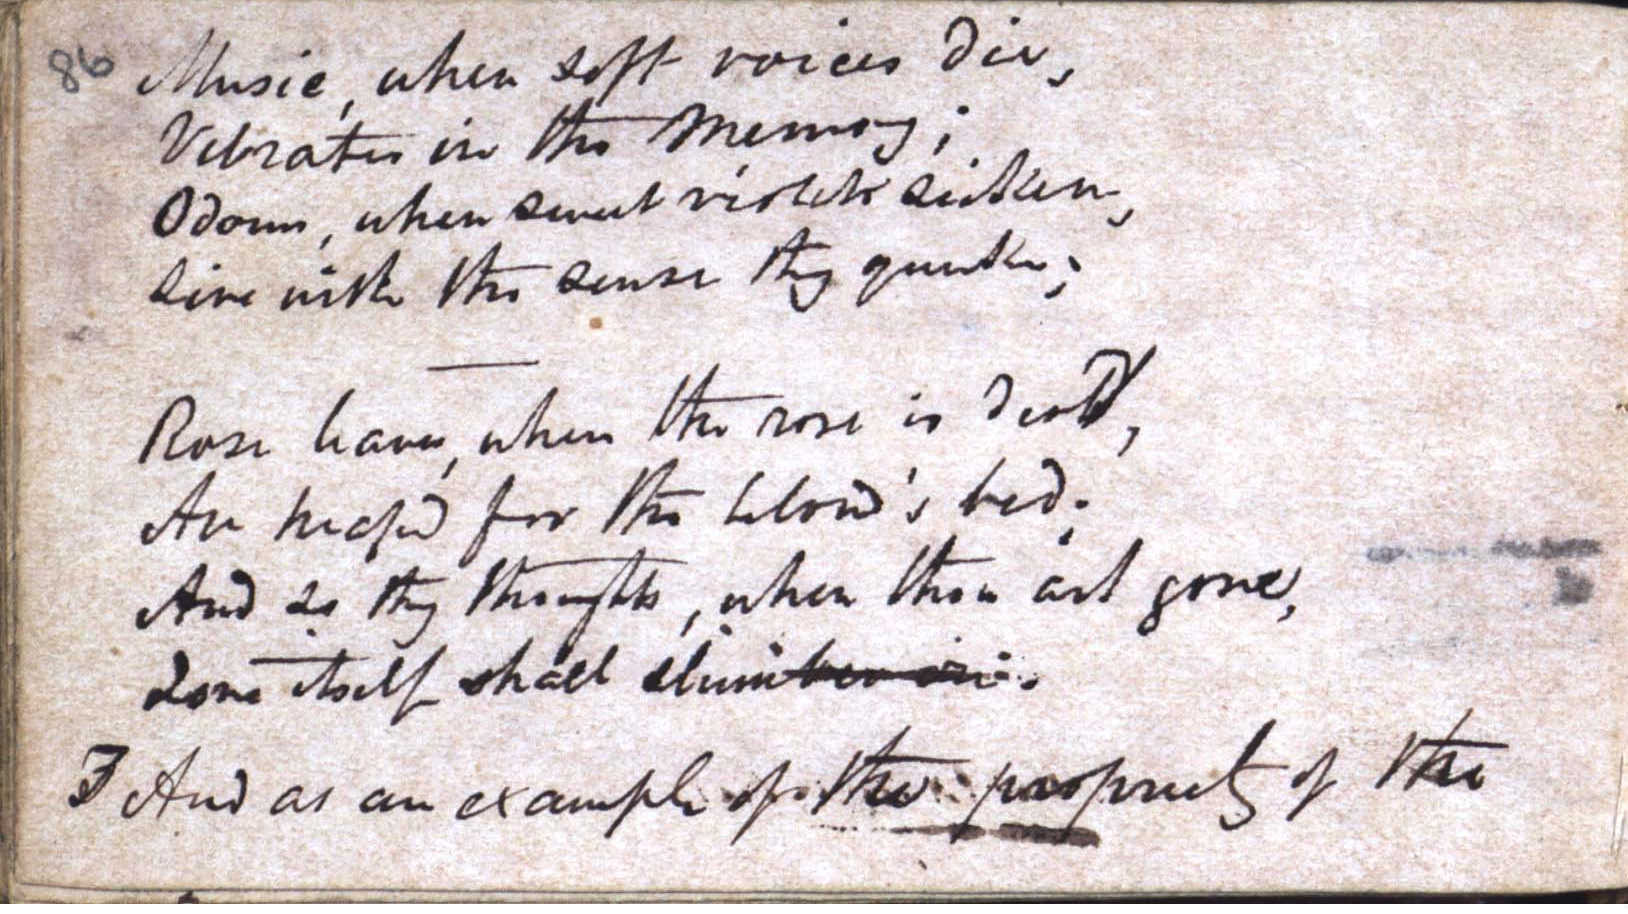 86
Music, when soft voices die,
Vibrates in the memory;
Odours, when sweet violets sicken,
Live with the sense they quicken;
Rose leaves, when the rose is dead,
Are heaped for the beloved's bed;
And so thy thoughts, when thou art gone,
Love itself shall slumber on.
And as an example of the propriety of the